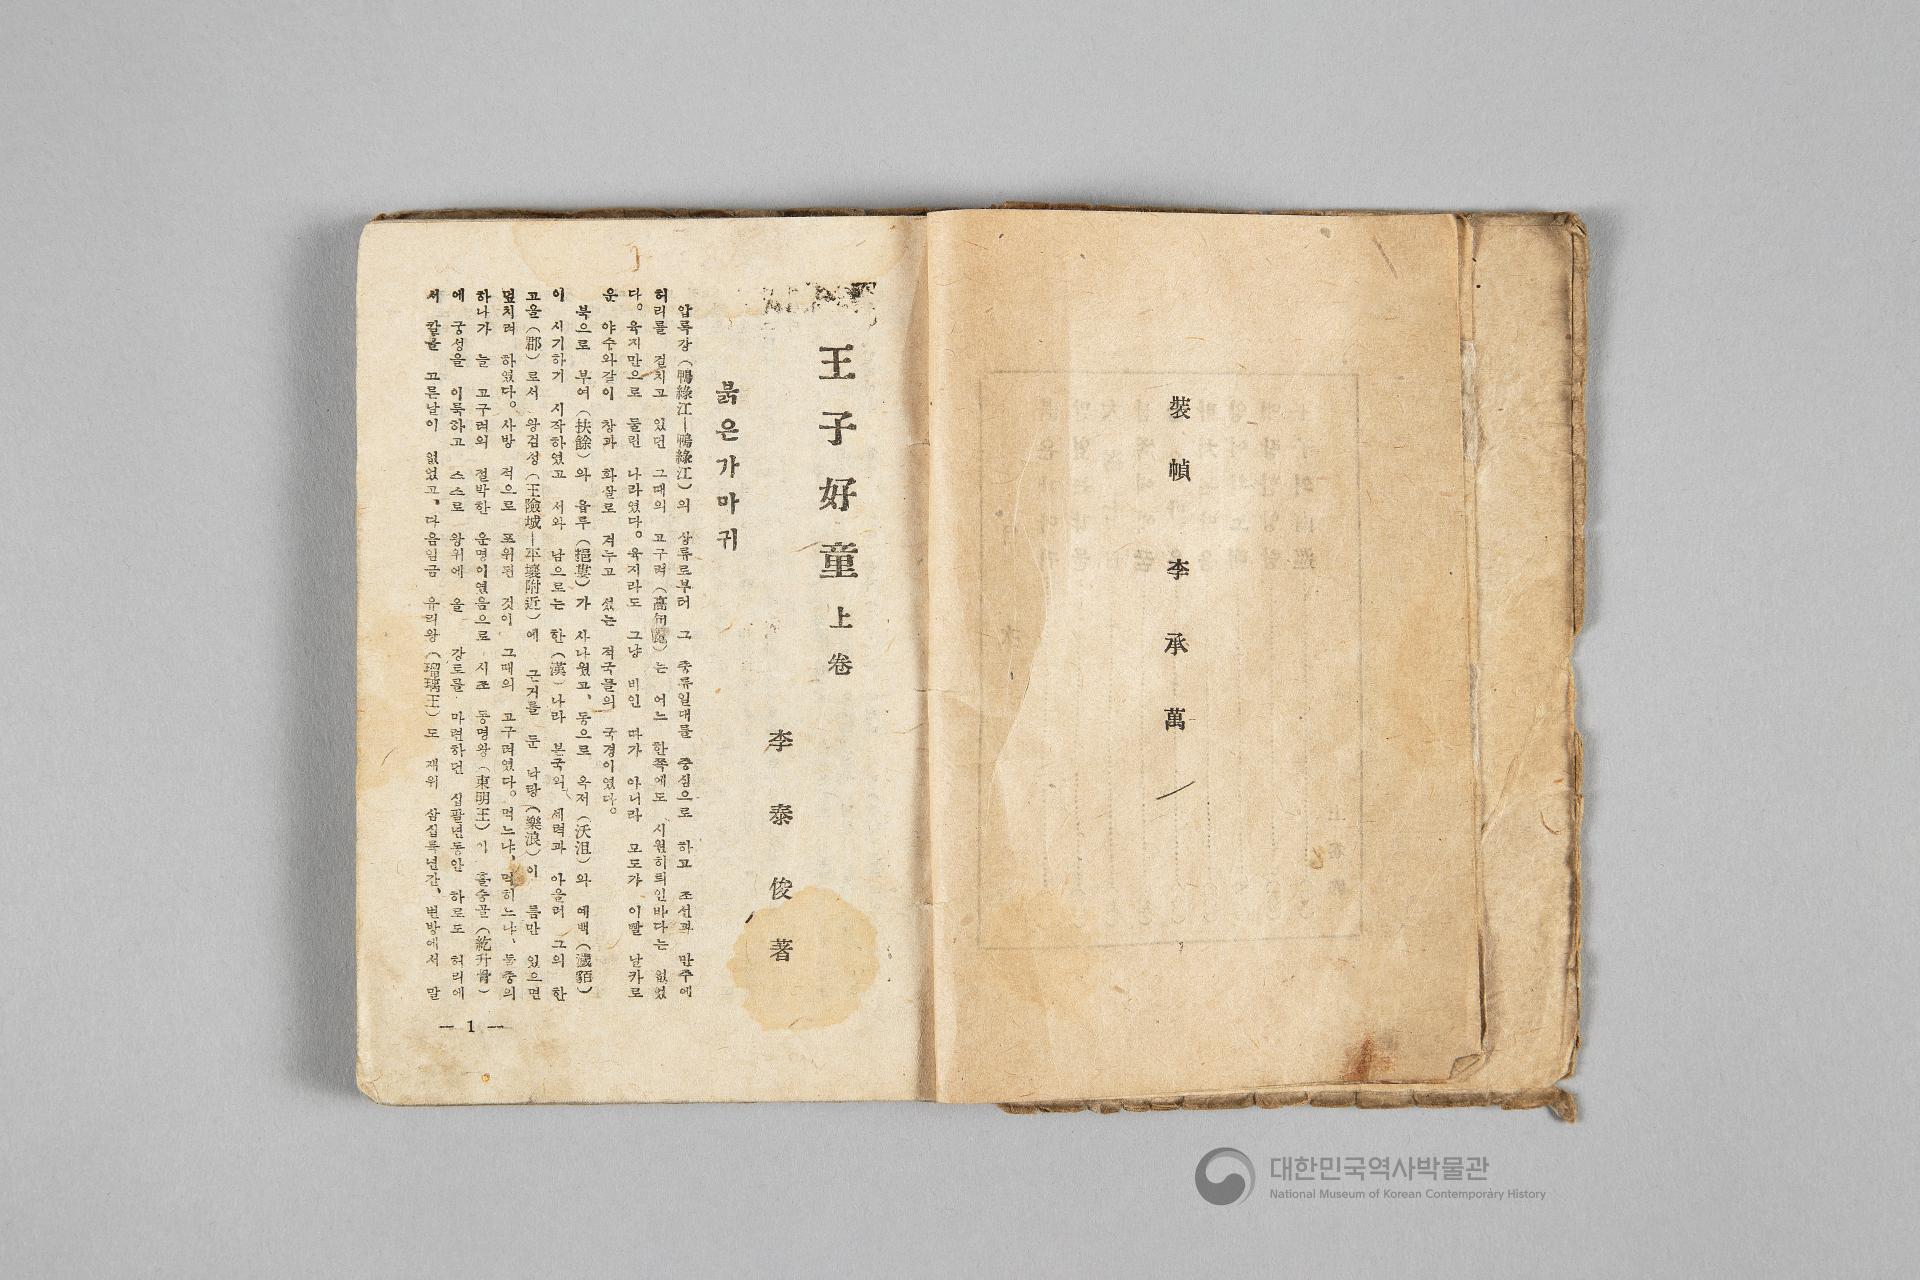 裝幀 李承萬
王子好童 上卷
李泰俊著
붉은가마귀
압록강(鴨綠江—鴨綠江)의 상류로부터 그 중류일대를 중심으로 하고 조선과 만주에
허리를 걸치고 있던 그때의 고구려(高句麗)는 어느 한쪽에도 시원히 틔인바다는 없었
다。육지만으로 물린 나라였다。육지라도 그냥 비인 따가 아니라 모도가 이빨 날카로
운 야수와같이 창과 화살로 겨누고 섰는 적국들의 국경이였다。
북으로 부여(扶餘)와 읍루(挹婁)가 사나웠고、동으로 옥저(沃沮)와 예백(濊貊)
이 시기하기 시작하였고 서와 남으로는 한(漢)나라 본국의 세력과 아울러 그의 한
고을(郡)로서 왕검성(王險城—平壤附近)에 근거를 둔 낙랑(樂浪)이 틈만 있으면
덮치려 하였다。사방 적으로 포위된 것이 그때의 고구려였다。먹느냐、먹히느냐、둘중의
하나가 늘 고구려의 절박한 운명이였음으로 시조 동명왕(東明王)이 흘승골(紇升骨)
에 궁성을 이룩하고 스스로 왕위에 올 강토를 마련하던 십팔년동안 하로도 허리에
서 칼을 고른날이 없었고、다음임금 유리왕(瑠璃王)도 재위 삼십륙년간、변방에서 말
— 1 —
대한민국역사박물관
National Museum of Korean Contemporary History